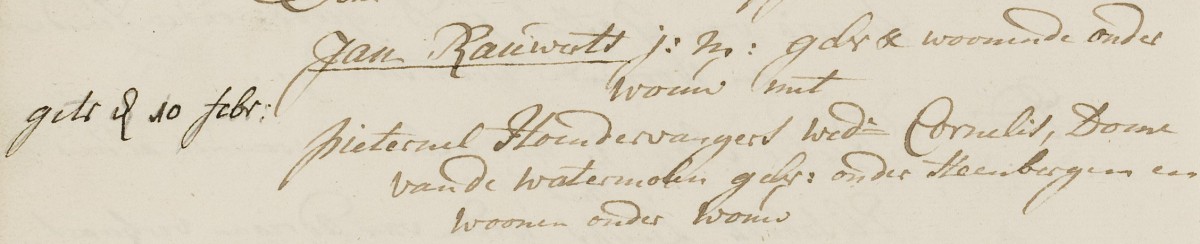 Jan Rauwerts j: m: gebr & woonende onder
wouw met
getr d 10 febr:
pieternel Hoendervangers wedn Cornelis, Dome
van de watermolen gebr: onder Steenbergen en
woonen onder wouw